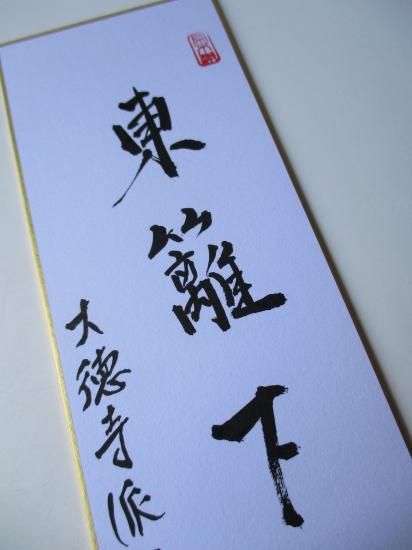 東籬下
大徳寺派